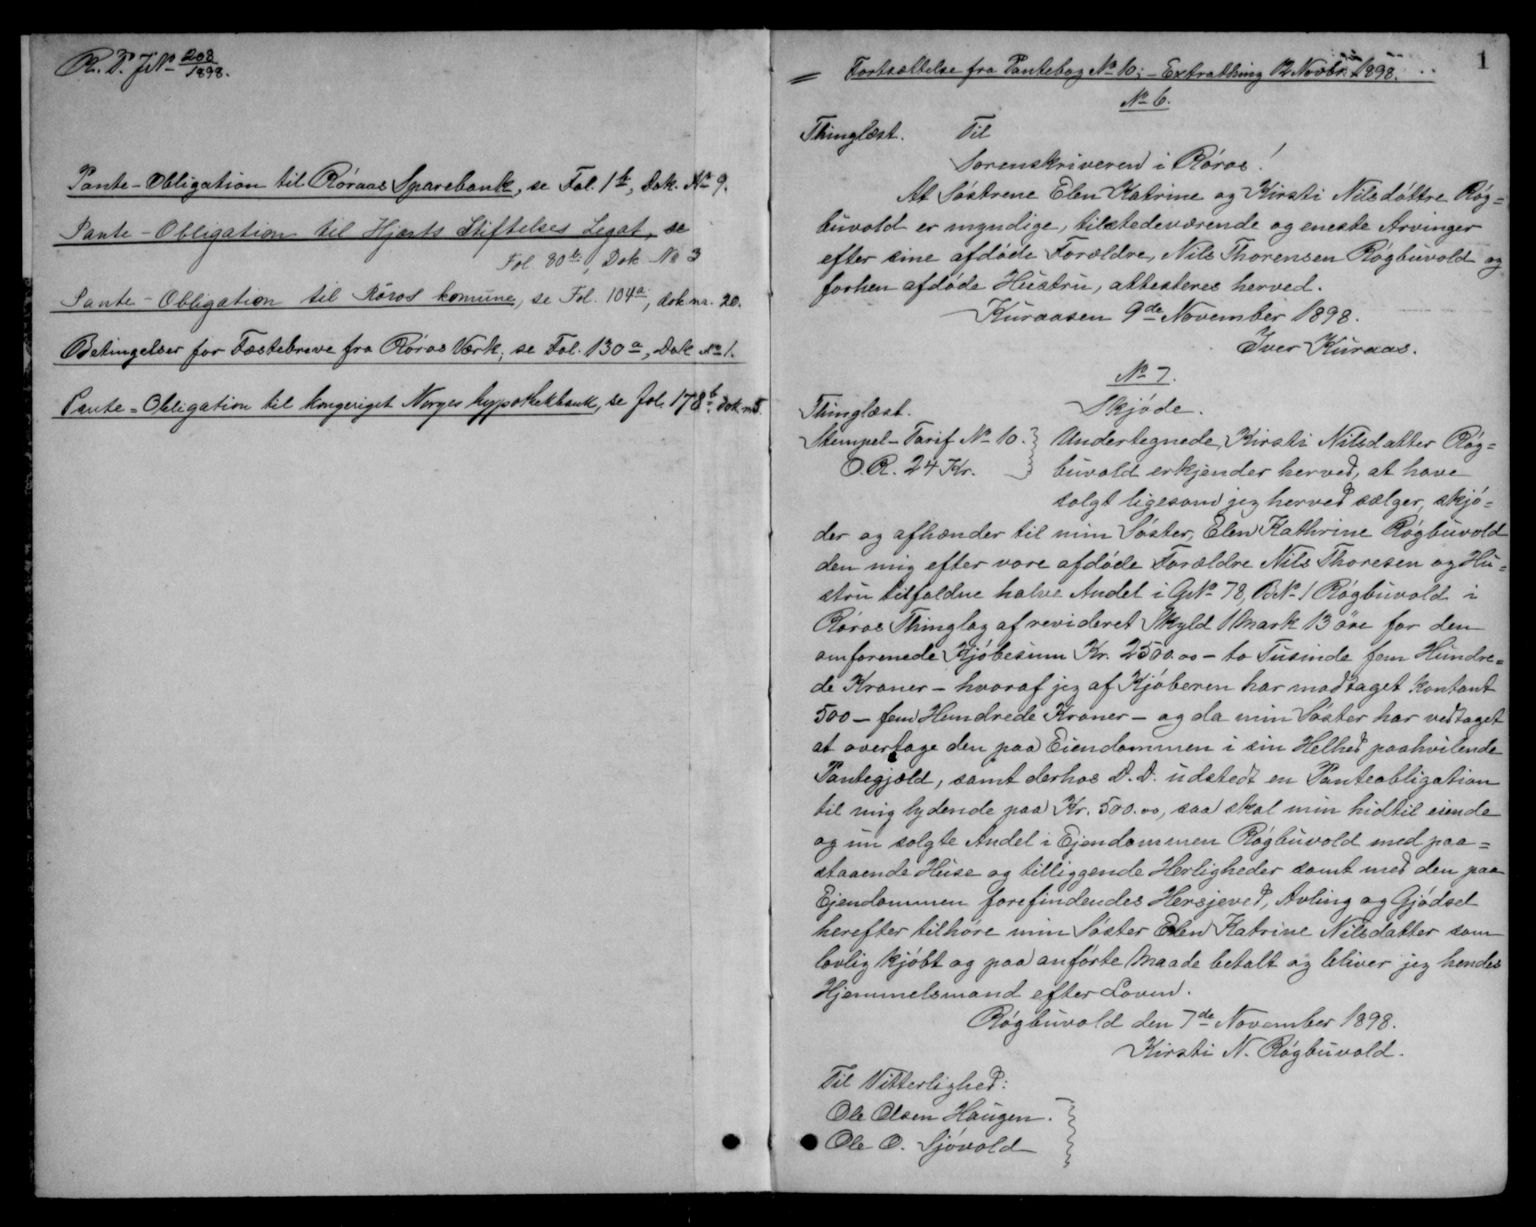 R. D. J.No 208/1898.
Pante-Obligation til Röraas Sparebank, se Fol. 1b, Dok. No 9.
Pante-Obligation til Hjorts Stiftelses Legat, se
Fol. 80b, Dok No 3
Pante-Obligation til Röros komune, se Fol. 104a, dok no. 20.
Betingelser for Fæstebreve fra Röros Værk, se Fol. 130a, Dok No 1.
Pante-Obligation til kongeriget Norges hypothekbank, se fol. 178b, dok no 5.
1
Fortsættelse fra Pantebog No 10; - Extrathing 12 Novbr. 1898.
No 6.
Thinglæst. Til
Sorenskriveren i Röros!
At Söstrene Elen Katrine og Kirsti Nilsdöttre Rög=
buvold er myndige, tilstedeværende og eneste Arvinger
efter sine afdöde Forældre, Nils Thorensen Rögbuvold og
forhen afdöde Hustru, attesteres herved.
Kuraasen 9de November 1898.
Iver Kuraas.
No 7.
Thinglæst. Skjöde.
Stempel-Tarif No 10. Undertegnede, Kirsti Nilsdatter Rög=
O.R. 24 Kr. buvold erkjender herved, at have
solgt ligesom jeg herved sælger, skjö=
der og afhænder til min Söster, Elen Kathrine Rögbuvold
den mig efter vore afdöde Forældre Nils Thoresen og Hu=
stru tilfaldne halve Andel i GNo 78, BNo 1 Rögbuvold i
Röros Thinglag af revideret Skyld 1 Mark 13 öre for den
omforenede Kjöbesum Kr. 2500.00 - to Tusinde fem Hundre=
de Kroner - hvoraf jeg af Kjöberen har modtaget kontant
500 - fem Hundrede Kroner - og da min Söster har vedtaget
at overtage den paa Eiendommen i sin Helhed paahvilende
Pantegjæld, samt derhos D.D. udstedt en Panteobligation
til mig lydende paa Kr. 500.00, saa skal min hidtil eiende
og nu solgte Andel i Ejendommen Rögbuvold med paa=
staaende Huse og tilliggende Herligheder samt med den paa
Ejendommen forefindendes Hersjeved, Avling og Gjödsel
herefter tilhöre min Söster Elen Katrine Nilsdatter som
lovlig kjöbt og paa anförte Maade betalt og bliver jeg hendes
Hjemmelsmand efter Loven.
Rögbuvold den 7de November 1898.
Kirsti N. Rögbuvold.
Til Vitterlighed:
Ole Olsen Haugen.
Ole O. Sjövold